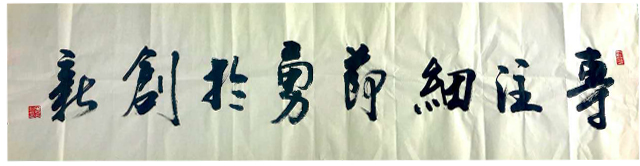 專注細節勇於創新